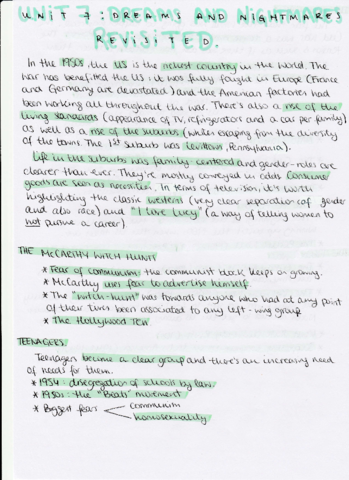 UNIT 7: DREAMS AND NIGHTMARES
REVISITED.
In the 1950s the US is the richest country in the world. The
war has benefited the US: it was fully fought in Europe (France
and Germany are devastated) and the American factories had
been working all throughout the war. There's also a rise of the
living standards (appearance of TV, refrigerators and a car per family)
as well as a rise of the suburbs (whites escaping from the diversity
of the towns. The 1st suburb was Levittown, Pennsylvania).
Life in the suburbs was family centered and gender-roles are
clearer than ever. They're mostly conveyed in adds. Consume
goods are seen as necessities. In terms of television, it's worth
highlighting the classic westerns (very clear separation of gender
and also race) and "I love Lucy" (a way of telling women to
not pursue a career)
THE McCARTHY WITCH HUNT
* Fear of communism: the communist block keeps on growing.
* McCarthy uses fear to advertise himself.
* The "witch-hunt" was towards anyone who had at any point
of their lives been associated to any left-wing group
* The Hollywood Ten
TEENAGERS
Teenagers become a clear group and there's an increasing need
of needs for them.
* 1954: disegregation of schools by law.
* 1950s: the "Beats" movement
* Biggest fears communism
homosexuality